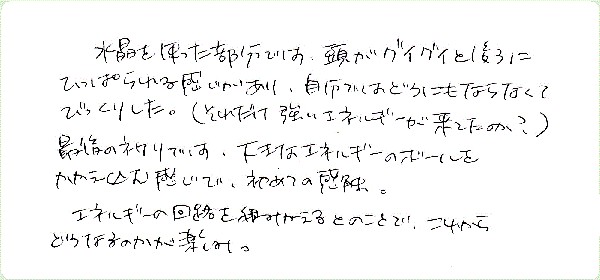 水晶を使った部分では、頭がグイグイと後ろに
ひっぱられる感じがあり、自分ではどうにもならなくて
びっくりした。(それだけ強いエネルギーが来てたのか?)
最後のネクリでは、大きなエネルギーのボールを
かかえ込む感じで、初めての感触。
エネルギーの回路を組みかえるとのことで、これから
どうなるのかが楽しみ。